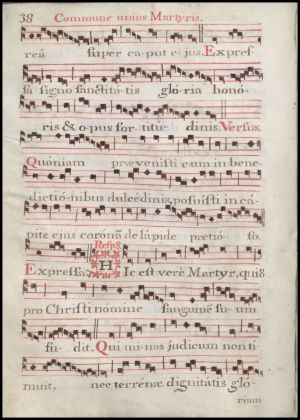 38 Commune unius Martyris.
reã super caput ejus. Expres-
sã signo sanctita-tis glo-ria honó-
ris & o-pus for-titu- dinis. Versus.
Quóniam prævenisti eum in bene-
dictió-nibus dulcedinis, posuisti in cá-
pite ejus coronã de lápide pretió- so.
Resp. 8.
Expressa. HIc est verè Martyr, qui 8
pro Christi nómine sanguinẽ su-um
fu- dit. Qui mi-nas judicum non tí-
muit, nec terrénæ dignitátis gló-
riam